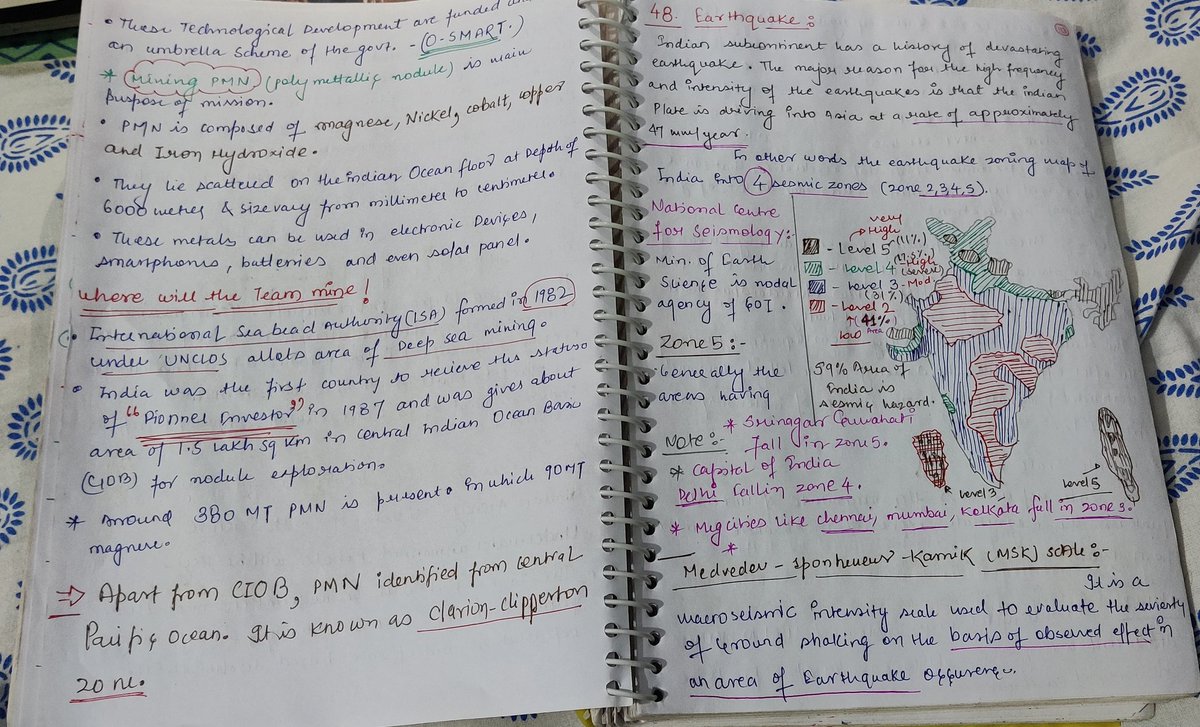 • These Technological Development are funded
an umbrella scheme of the govt. - (O-SMART.)
* Mining PMN (poly mettallic nodule) is main
purpose of mission.
• PMN is composed of magnese, Nickel, cobalt, copper
and Iron Hydroxide.
• They lie scattered on the indian Ocean floor at Depth of
6000 metres & size vary from millimeter to centimeter.
• These metals can be used in electronic Devices,
smartphones, batteries and even solar panel.
Where will the Team mine!
• International Seabead Authority (ISA) formed in 1982
under UNCLOS allots area of Deep sea mining.
• India was the first country to recieve the status
of "Pionnel Investor" in 1987 and was gives about
area of 1.5 Lakh sq km in central Indian Ocean Basic
(CIOB) for nodule exploration.
* Around 380 MT PMN is present. In which 90 MT
magnese.
⇒ Apart from CIOB, PMN identified from central
Pacific Ocean. It is known as clarion-clipperton
zone.
48. Earthquake :-
Indian subcontinent has a history of devastating
earthquake. The major reason for the high frequency
and intensity of the earthquakes is that the indian
Plate is driving into Asia at a rate of approximately
47 mm/year.
In other words the earthquake zoning map of
India into 4 sesmic zones (zone 2,3,4,5).
National Centre
for Seismology:-
Min. of Earth
Science is nodal
agency of GOI.
Zone 5 :-
Generally the
areas having
very
High
- Level 5 (11%)
- Level 4 High (severe)
- Level 3 - Mod.
(31%)
- Level 2
(41%)
low Area
59% Area of
India is
sesmic hazard.
* Srinagar Guwahati
fall in zone 5.
Note :-
* Capital of India
Delhi fall in zone 4.
level 3
level 5
* Mgcities like chennai, mumbai, Kolkata fall in zone 3.
*
Medvedev - Sponheuer - Karnik (MSK) scale :-
It is a
macroseismic intensity scale used to evaluate the
of Ground shaking on the basis of observed effect in
an area of Earthquake